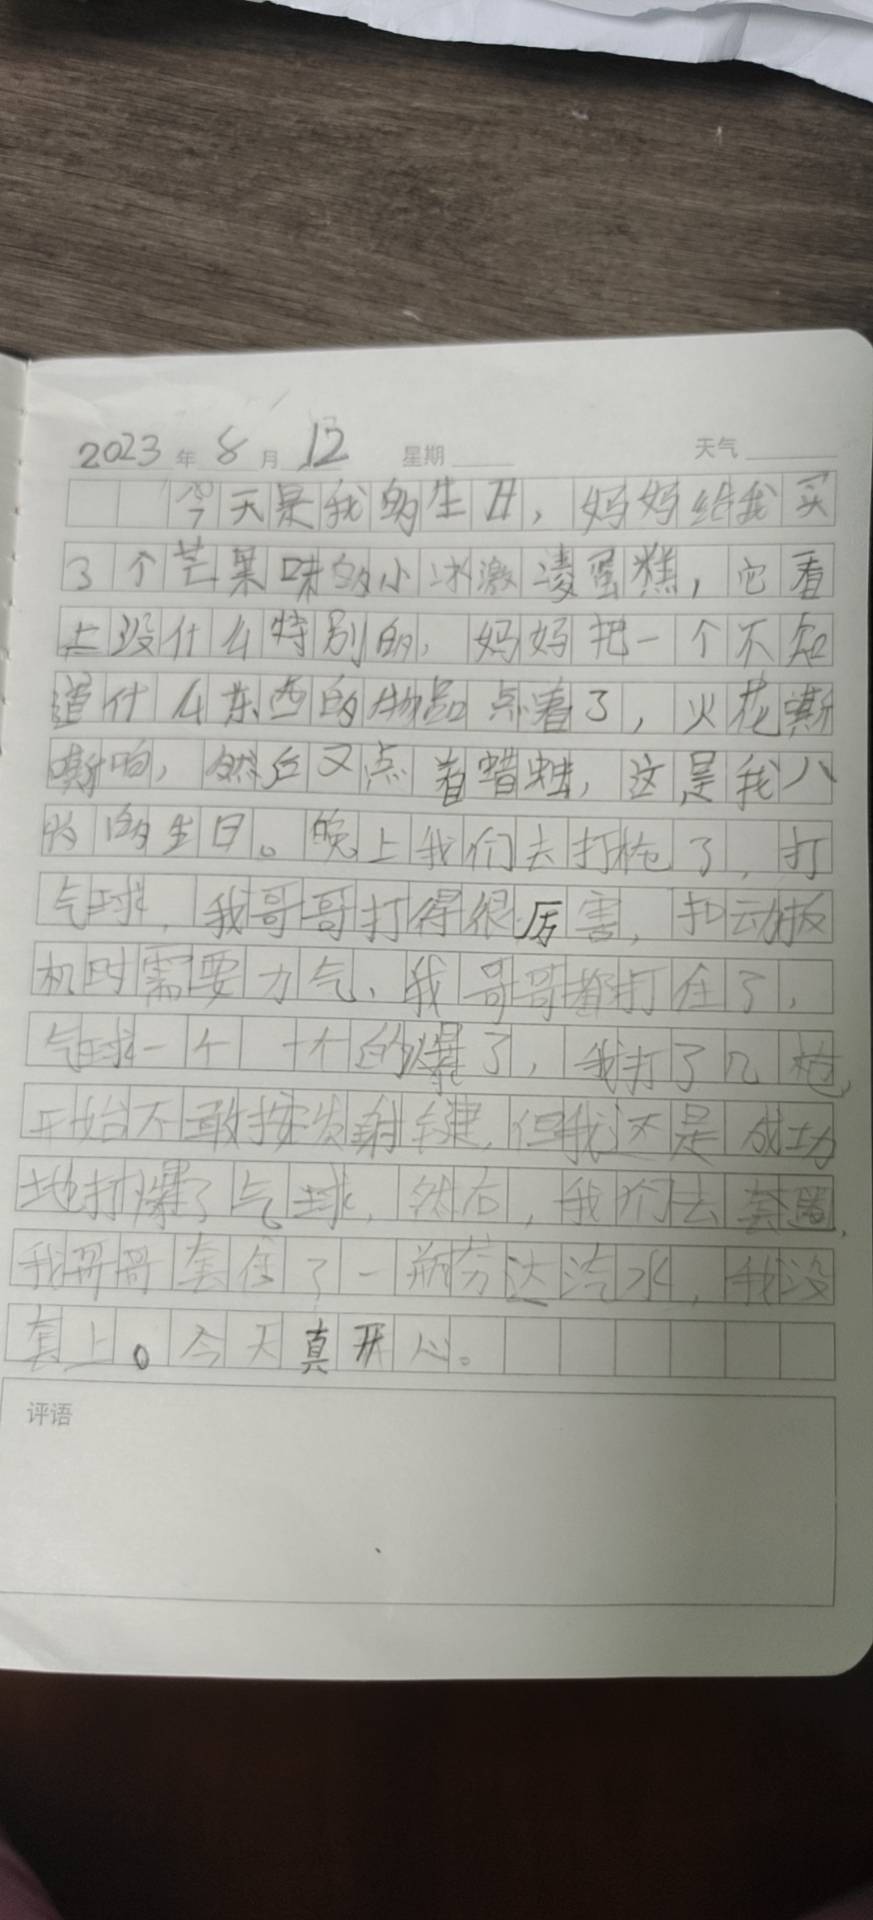 2023 年 8 月 12 星期 天气
今天是我的生日，妈妈给我买
了个芒果味的小冰激凌蛋糕，它看
上没什么特别的，妈妈把一个不知
道什么东西的物品点着了，火花嘶
嘶响，然后又点着蜡烛，这是我八
岁的生日。晚上我们去打枪了，打
气球，我哥哥打得很厉害，扣动扳
机时需要力气，我哥哥都打住了，
气球一个一个的爆了，我打了几枪，
开始不敢按发射键，但我还是成功
地打爆了气球，然后，我们去套圈，
我哥哥套住了一瓶芬达汽水，我没
套上。今天真开心。
评语